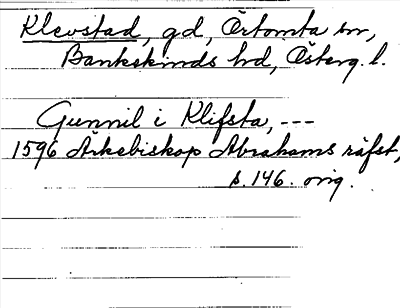 Klevstad, gd, Örtomta sn,
Bankekinds hd, Österg. l.
Gunnil i Klifsta, ---
1596 Ärkebiskop Abrahams räfst,
s. 146. orig.